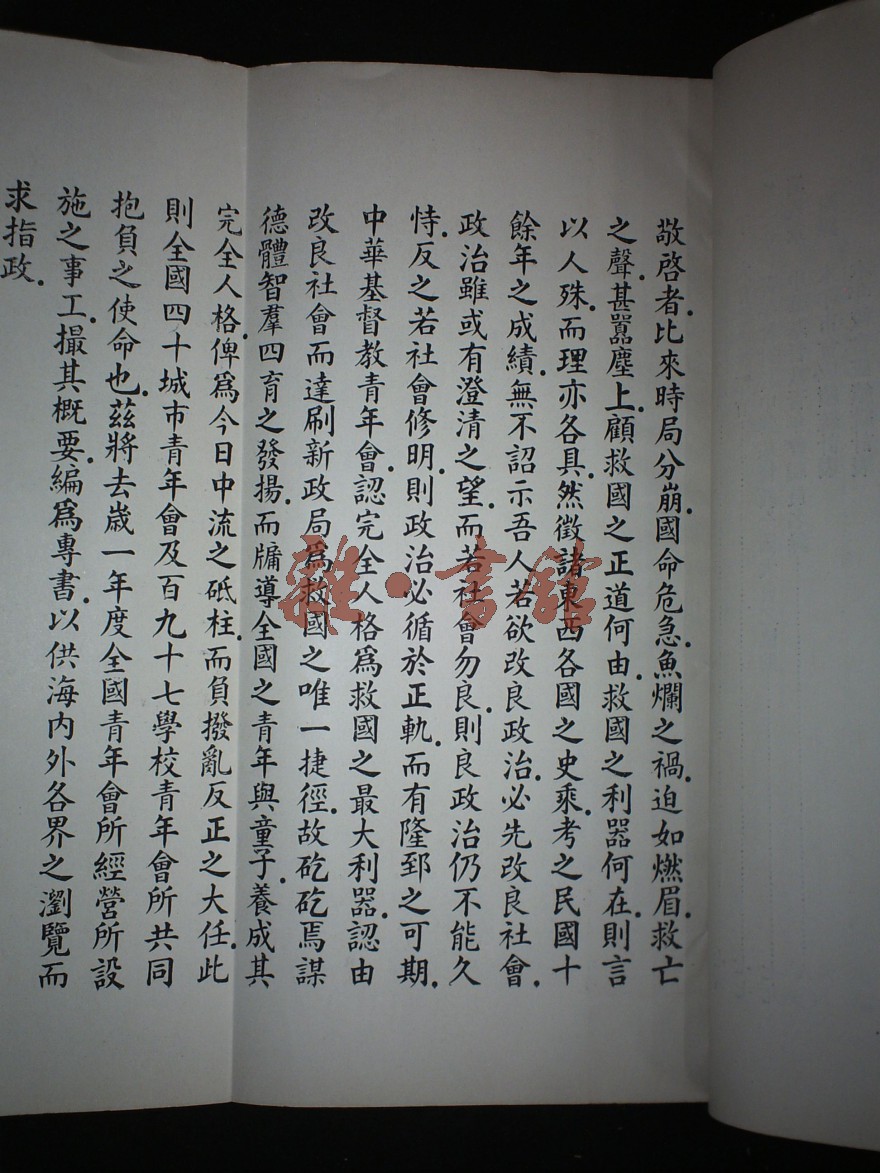 敬啓者.比來時局分崩.國命危急.魚爛之禍.迫如燃眉.救亡
之聲.甚囂塵上.顧救國之正道何由.救國之利器何在.則言
以人殊.而理亦各具.然徵諸東西各國之史乘.考之民國十
餘年之成績.無不詔示吾人若欲改良政治.必先改良社會.
政治雖或有澄清之望.而若社會勿良.則良政治仍不能久
恃.反之若社會修明.則政治必循於正軌.而有隆郅之可期.
中華基督教青年會.認完全人格爲救國之最大利器.認由
改良社會而達刷新政局爲救國之唯一捷徑.故矻矻焉謀
德體智羣四育之發揚.而牖導全國之青年與童子.養成其
完全人格.俾爲今日中流之砥柱.而負撥亂反正之大任.此
則全國四十城市青年會及百九十七學校青年會所共同
抱負之使命也.茲將去歲一年度全國青年會所經營所設
施之事工.撮其概要.編爲專書.以供海內外各界之瀏覽而
求指政.
雜·書館